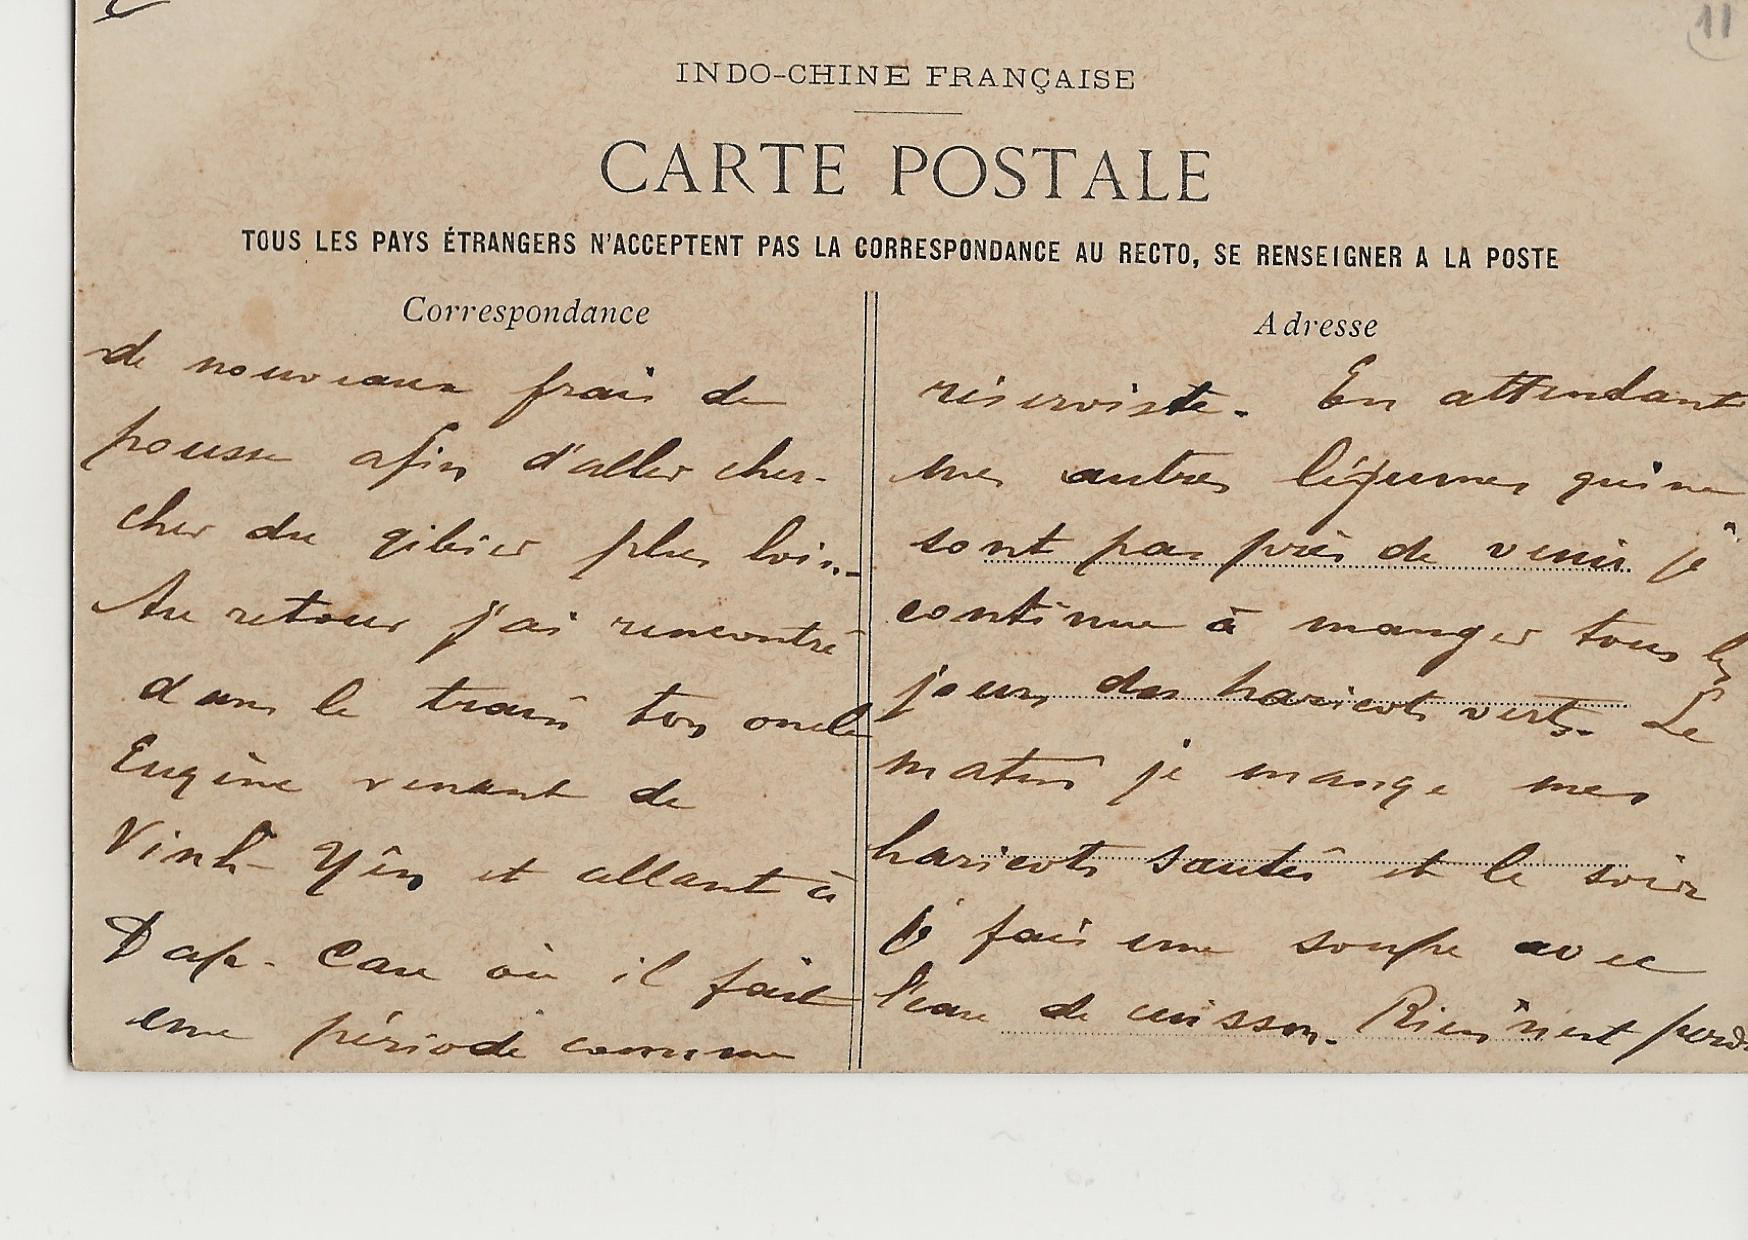 11
INDO-CHINE FRANÇAISE
CARTE POSTALE
TOUS LES PAYS ÉTRANGERS N'ACCEPTENT PAS LA CORRESPONDANCE AU RECTO, SE RENSEIGNER A LA POSTE
Correspondance
de nouveaux frais de
pousse afin d'aller cher-
cher du gibier plus loin.
Au retour j'ai rencontré
dans le train ton oncle
Eugène venant de
Vinh-Yên et allant à
Dap-Cau où il fait
une période comme
Adresse
réserviste. En attendant
mes autres légumes qui ne
sont pas près de venir je
continue à manger tous les
jours des haricots verts. Le
matin je mange mes
haricots sautés et le soir
je fais une soupe avec
l'eau de cuisson. Rien n'est perdu